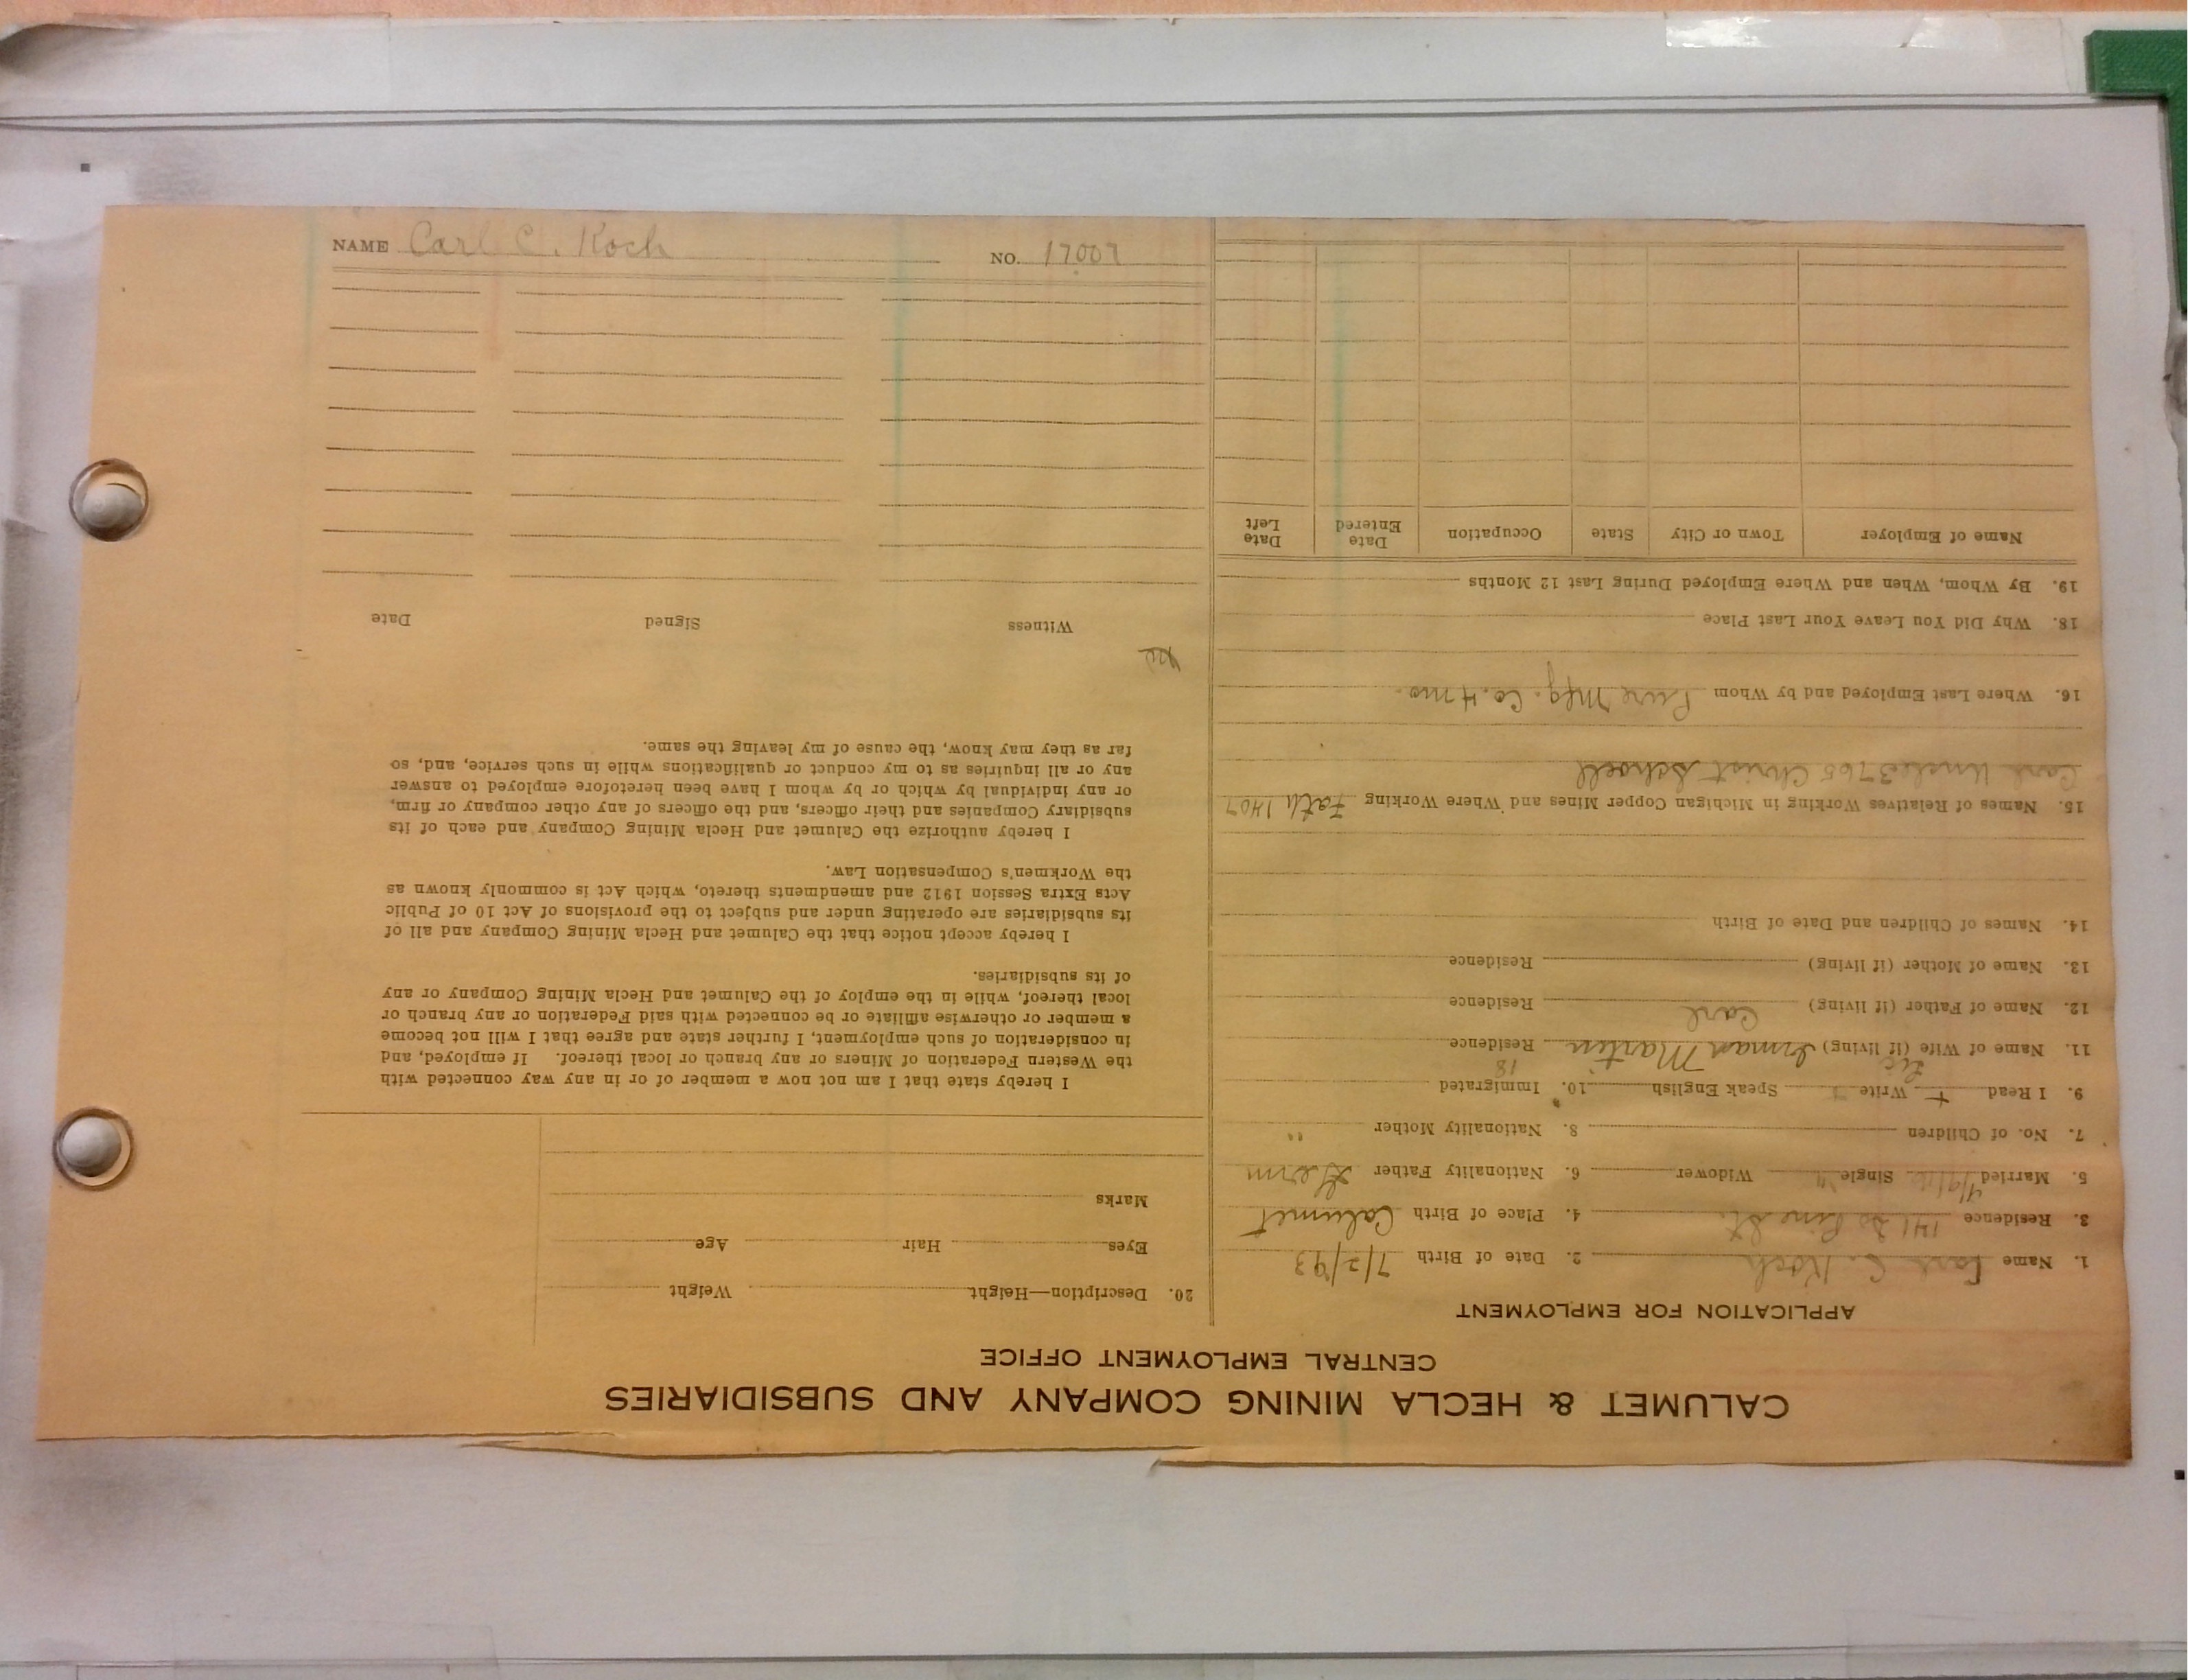 CALUMET & HECLA MINING COMPANY AND SUBSIDIARIES
CENTRAL EMPLOYMENT OFFICE
APPLICATION FOR EMPLOYMENT
1. Name Carl C. Koch 2. Date of Birth 7/2/93
3. Residence 141 So Pine St. 4. Place of Birth Calumet
5. Married Single Widower 6. Nationality Father Germ
7. No. of Children 8. Nationality Mother "
9. I Read + Write Speak English 10. Immigrated
18
11. Name of Wife (if living) Martin Residence
12. Name of Father (if living) Carl Residence
13. Name of Mother (if living) Residence
14. Names of Children and Date of Birth
15. Names of Relatives Working in Michigan Copper Mines and Where Working Fath 1407
Carl Uncle 3765 Christ Schroell
16. Where Last Employed and by Whom Mfg. Co. 4 mo.
18. Why Did You Leave Your Last Place
19. By Whom, When and Where Employed During Last 12 Months
Name of Employer Town or City State Occupation Date Entered Date Left
20. Description—Height Weight
Eyes Hair Age
Marks
I hereby state that I am not now a member of or in any way connected with
the Western Federation of Miners or any branch or local thereof. If employed, and
in consideration of such employment, I further state and agree that I will not become
a member or otherwise affiliate or be connected with said Federation or any branch or
local thereof, while in the employ of the Calumet and Hecla Mining Company or any
of its subsidiaries.
I hereby accept notice that the Calumet and Hecla Mining Company and all of
its subsidiaries are operating under and subject to the provisions of Act 10 of Public
Acts Extra Session 1912 and amendments thereto, which Act is commonly known as
the Workmen's Compensation Law.
I hereby authorize the Calumet and Hecla Mining Company and each of its
subsidiary Companies and their officers, and the officers of any other company or firm,
or any individual by which or by whom I have been heretofore employed to answer
any or all inquiries as to my conduct or qualifications while in such service, and, so
far as they may know, the cause of my leaving the same.
Witness Signed Date
NAME Carl C. Koch NO. 17007